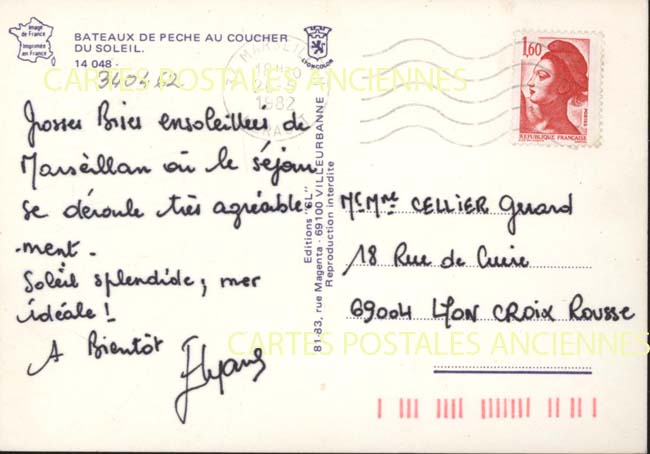 Image
de France
Imprimée
en France
BATEAUX DE PECHE AU COUCHER
DU SOLEIL.
14 048 -
340442
LYONCOLOR
1982
1,60
POSTES
REPUBLIQUE FRANÇAISE
CARTES POSTALES ANCIENNES
Grosses Bises ensoleillées de
Marseillan où le séjour
se déroule très agréable
-ment.
Soleil splendide, mer
idéale !
A Bientôt
Editions "SL"
81-83, rue Magenta - 69100 VILLEURBANNE
Reproduction interdite
Mr Mme CELLIER Gérard
18 Rue de Cuire
69004 LYON CROIX ROUSSE
CARTES POSTALES ANCIENNES